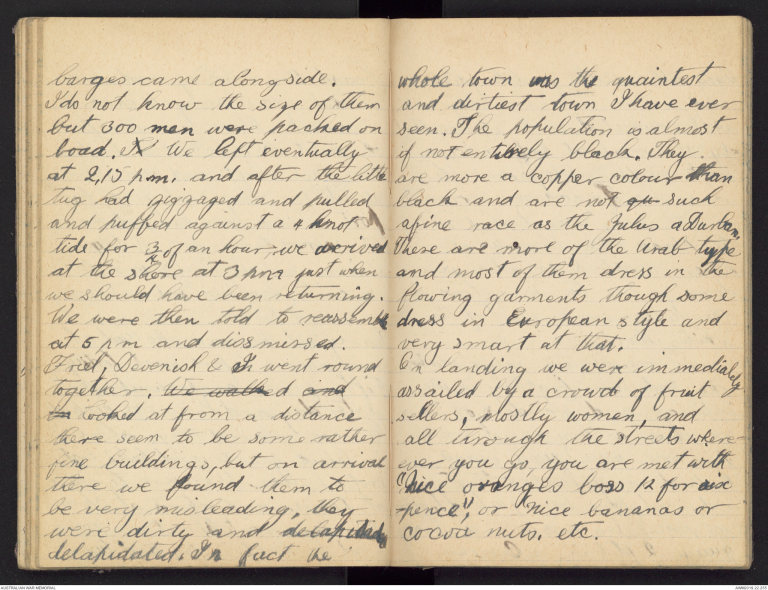 barges came alongside.
I do not know the size of them
but 300 men were packed on
boad. We left eventually
at 2,15 p.m. and after the little
tug had zigzaged and pulled
and puffed against a 4 knot
tide for 3/4 of an hour, we arrived
at the shore at 3 pm just when
we should have been returning.
We were then told to reassemble
at 5 pm and dissmissed.
Fried, Devenish & I went round
together. We walked and
looked at from a distance
there seem to be some rather
fine buildings, but on arrival
there we found them to
be very misleading, they
were dirty and delapidady
delapidated. In fact the
whole town was the quaintest
and dirtiest town I have ever
seen. The population is almost
if not entirely black. They
are more a copper colour than
black and are not such
a fine race as the Zulus a Durban.
These are more of the Arab type
and most of them dress in the
flowing garments though some
dress in European style and
very smart at that.
On landing we were immediately
assailed by a crowd of fruit
sellers, mostly women, and
all through the streets where-
ever you go, you are met with
"Nice oranges boss 12 for six
-pence", or nice bananas or
cocoa nuts. etc.
AUSTRALIAN WAR MEMORIAL